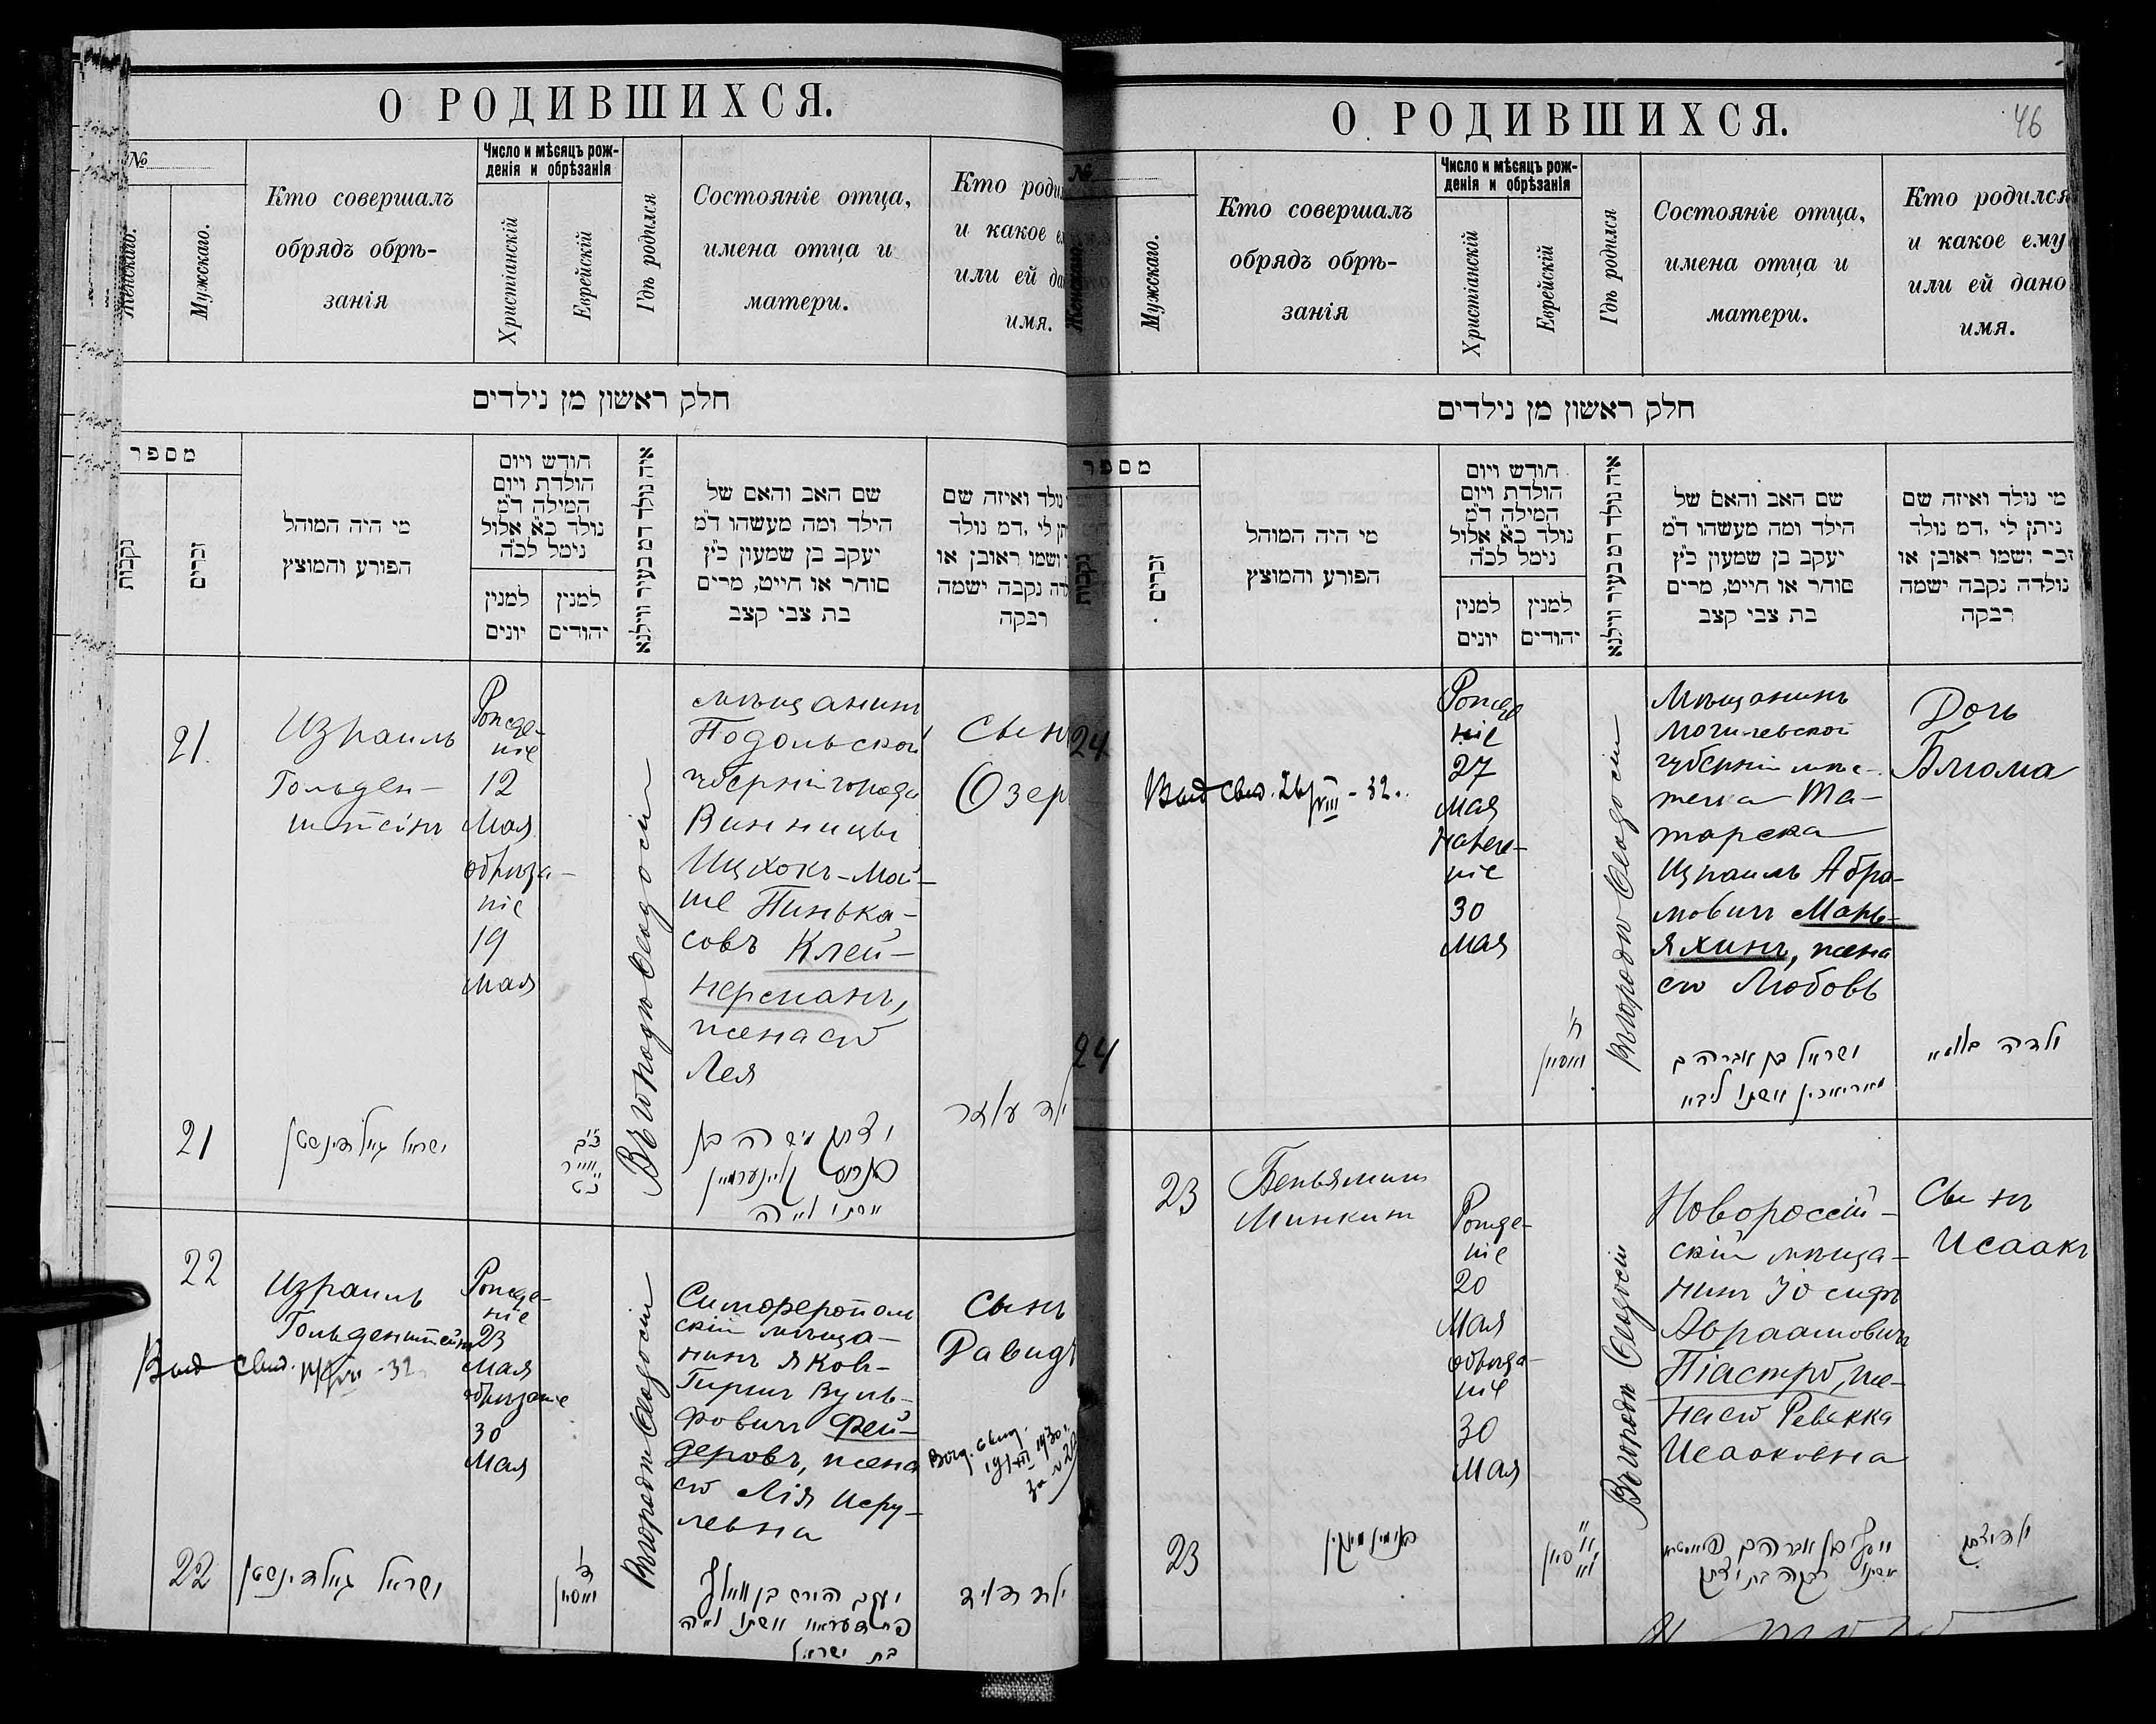 О РОДИВШИХСЯ.
№
Женскаго.
Мужскаго.
Кто совершалъ
обрядъ обрѣ-
занія
Число и мѣсяцъ рож-
денія и обрѣзанія
Христіанскій
Еврейскій
Гдѣ родился
Состояніе отца,
имена отца и
матери.
Кто роди
и какое е
или ей да
имя.
חלק ראשון מן נילדים
מספר
נקבות
זכרים
מי היה המוהל
הפורע והמוצץ
חודש ויום
הולדת ויום
המילה ד״מ
נולד כ״א אלול
נימל לכ״ה
למנין
יונים
למנין
יהודים
איה נולד דמ בעיר ווילנא
שם האב והאם של
הילד ומה מעשהו ד״מ
יעקב בן שמעון כ״ץ
סוחר או חייט, מרים
בת צבי קצב
נולד ואיזה שם
תן לי, דמ נולד
ושמו ראובן או
דה נקבה ישמה
רבקה
21
Израиль
Гольден-
штейнъ
Рожде-
ніе
12
Мая
обрѣза-
ніе
19
мая
Въ городѣ Ѳеодосіи
мѣщанинъ
Подольской
губерніи города
Винницы
Ицхокъ-Мой-
ше Пинька-
совъ Клей-
нерманъ,
жена его
Лея
Сынъ
Озер
21
ישראל גאלדינשטיין
יצחק משה בן
פנחס קליינערמאן
אשתו לאה
ילד עוזר
22
Израиль
Гольденштейнъ
Выд свид.
Рожде-
ніе
23
Мая
обрѣзаніе
30
Мая
Въ городѣ Ѳеодосіи
Симферополь
скій мѣща-
нинъ Яковъ-
Гиршъ Вуль-
фовичъ Фей-
деровъ, жена
его Лія Исру-
левна
Сынъ
Давидъ
Выд. свид.
19/XII 1930 г.
22
ישראל גאלדינשטיין
ניסן
יעקב הירש בן וואלף
אשתו לאה
בת ישראל
ילד דוד
О РОДИВШИХСЯ.
46
№
Женскаго.
Мужскаго.
Кто совершалъ
обрядъ обрѣ-
занія
Число и мѣсяцъ рож-
денія и обрѣзанія
Христіанскій
Еврейскій
Гдѣ родился
Состояніе отца,
имена отца и
матери.
Кто родился
и какое ему
или ей дано
имя.
חלק ראשון מן נילדים
מספר
נקבות
זכרים
מי היה המוהל
הפורע והמוצץ
חודש ויום
הולדת ויום
המילה ד״מ
נולד כ״א אלול
נימל לכ״ה
למנין
יונים
למנין
יהודים
איה נולד דמ בעיר ווילנא
שם האב והאם של
הילד ומה מעשהו ד״מ
יעקב בן שמעון כ״ץ
סוחר או חייט, מרים
בת צבי קצב
מי נולד ואיזה שם
ניתן לי, דמ נולד
זכר ושמו ראובן או
נולדה נקבה ישמה
רבקה
24
Выд свид. 26/VIII - 32.
Рожде
ніе
27
мая
Нарече-
ніе
30
мая
Въ городѣ Ѳеодосіи
Мѣщанинъ
Могилевской
губерніи мѣс-
течка Та-
тарска
Израиль Абра-
мовичъ Марь-
яхинъ, жена
его Любовь
Дочь
Блюма
24
ישראל בן אברהם
מאריאכין אשתו ליבא
ילדה בלומא
23
Беньяминъ
Минкинъ
Рожде-
ніе
20
Мая
обрѣза-
ніе
30
Мая
Въ городѣ Ѳеодосіи
Новороссій-
скій мѣща-
нинъ Іосифъ
Авраамовичъ
Піастро, же-
на его Ревекка
Исааковна
Сынъ
Исаакъ
23
בנימין מינקין
יוסף בן אברהם פיאסטרא
אשתו רבקה בת יצחק
ילד יצחק